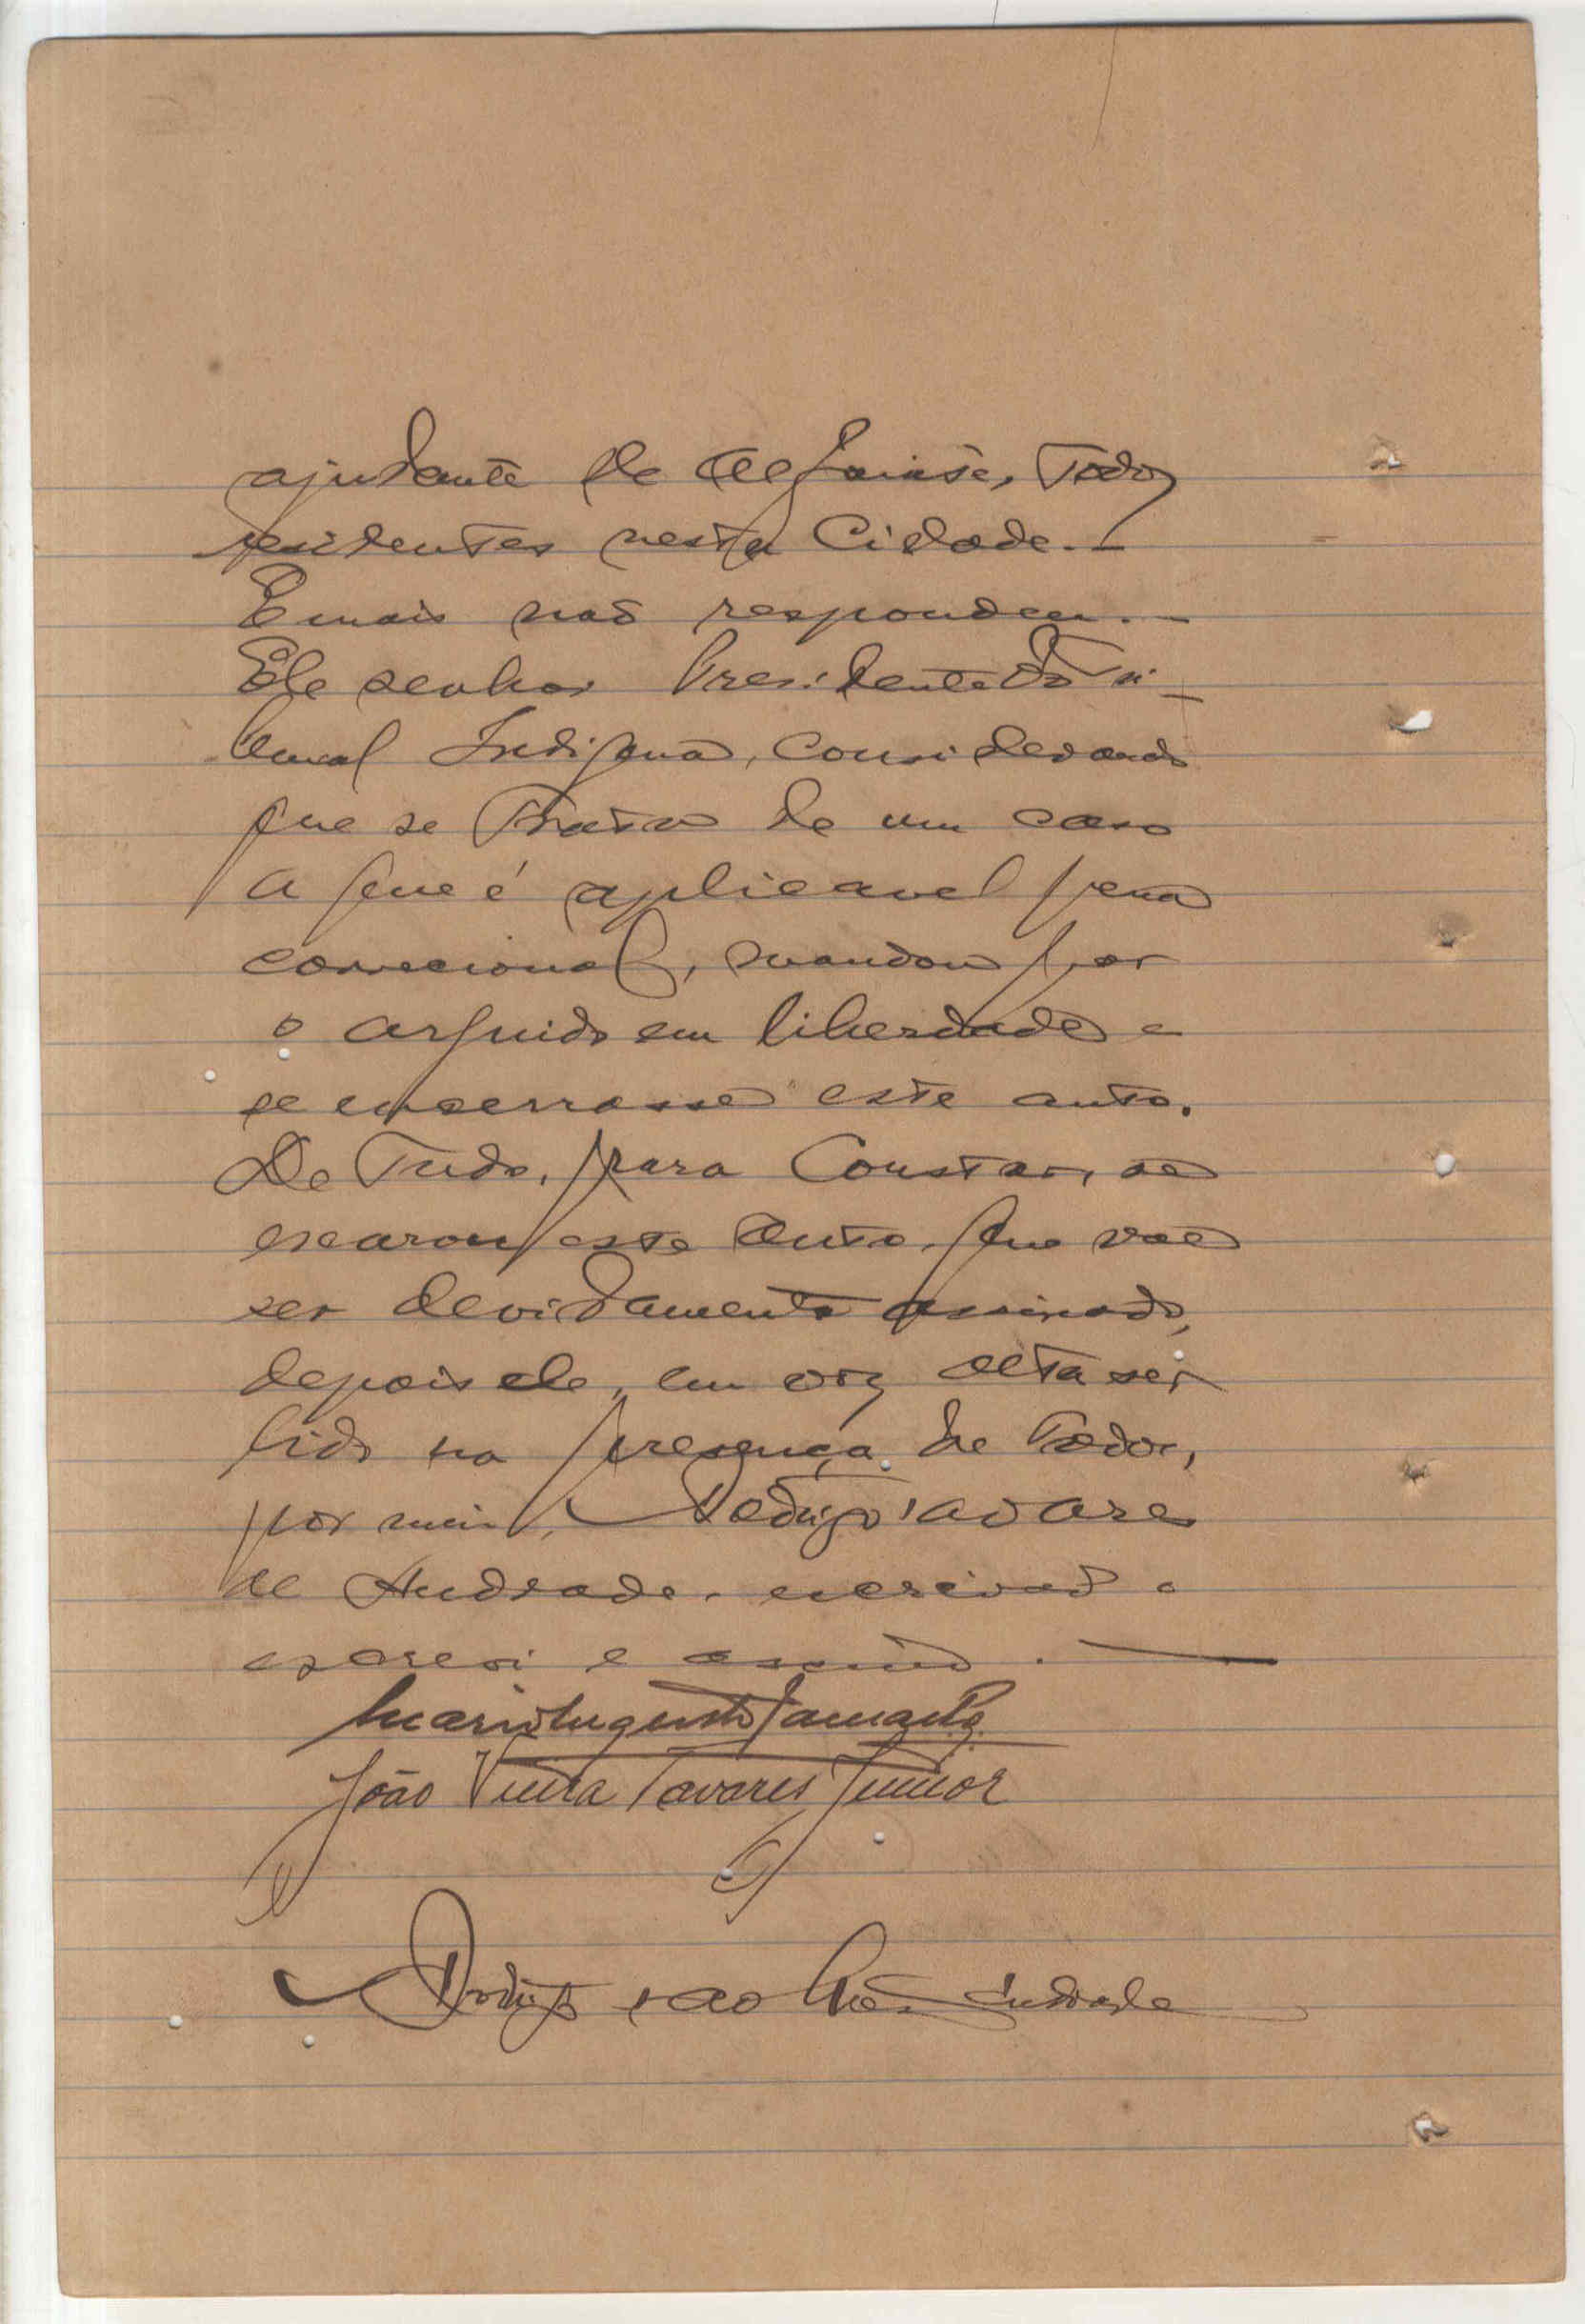 ajudante de alfaiate, todos
residentes nesta Cidade.—
E mais não respondeu.—
Ele senhor Presidente do Tri-
bunal Indigena, considerando
que se trata de um caso
a que é aplicavel pena
correcional, mandou pôr
o arguido em liberdade e
se encerrasse este auto.
De tudo, para constar, se
exarou este auto que vae
ser devidamente assinado,
depois de, em voz alta ser
lido na presença de todos,
por mim, Rodrigo Tavares
de Andrade, escrivão o
escrevi e assino.—
Mario Augusto
João Vieira Tavares Junior
Rodrigo Tavares Andrade